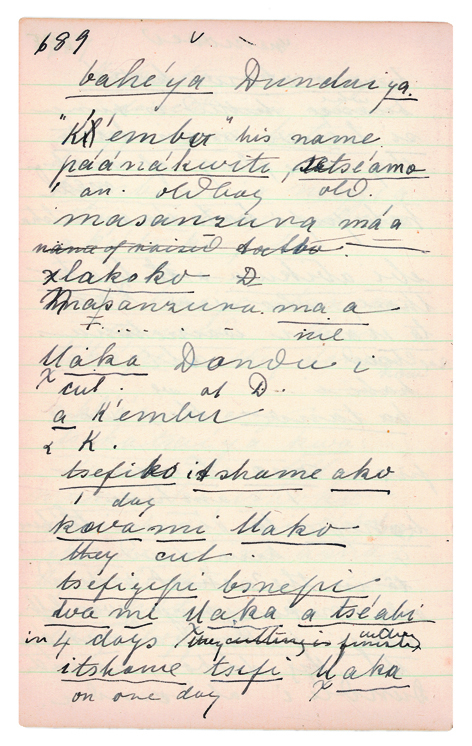 689
bahé'ya Dundaiya.
"K'embu" his name
páánákwiti, etséamo
an. old boy old.
masanzuna má a
name of raised tattoo
xlakoko D
Masanzuna ma a
me
Uaka Dondu i
x cut. at D.
a K'embu
& K.
tsefiko itshame ako
1 day
kova mi Uako
they cut.
tsefiyefi binefi
wa mi Uaka a tséabi
in 4 days they cutting is finished
itshame tsefi Uaka
on one day x